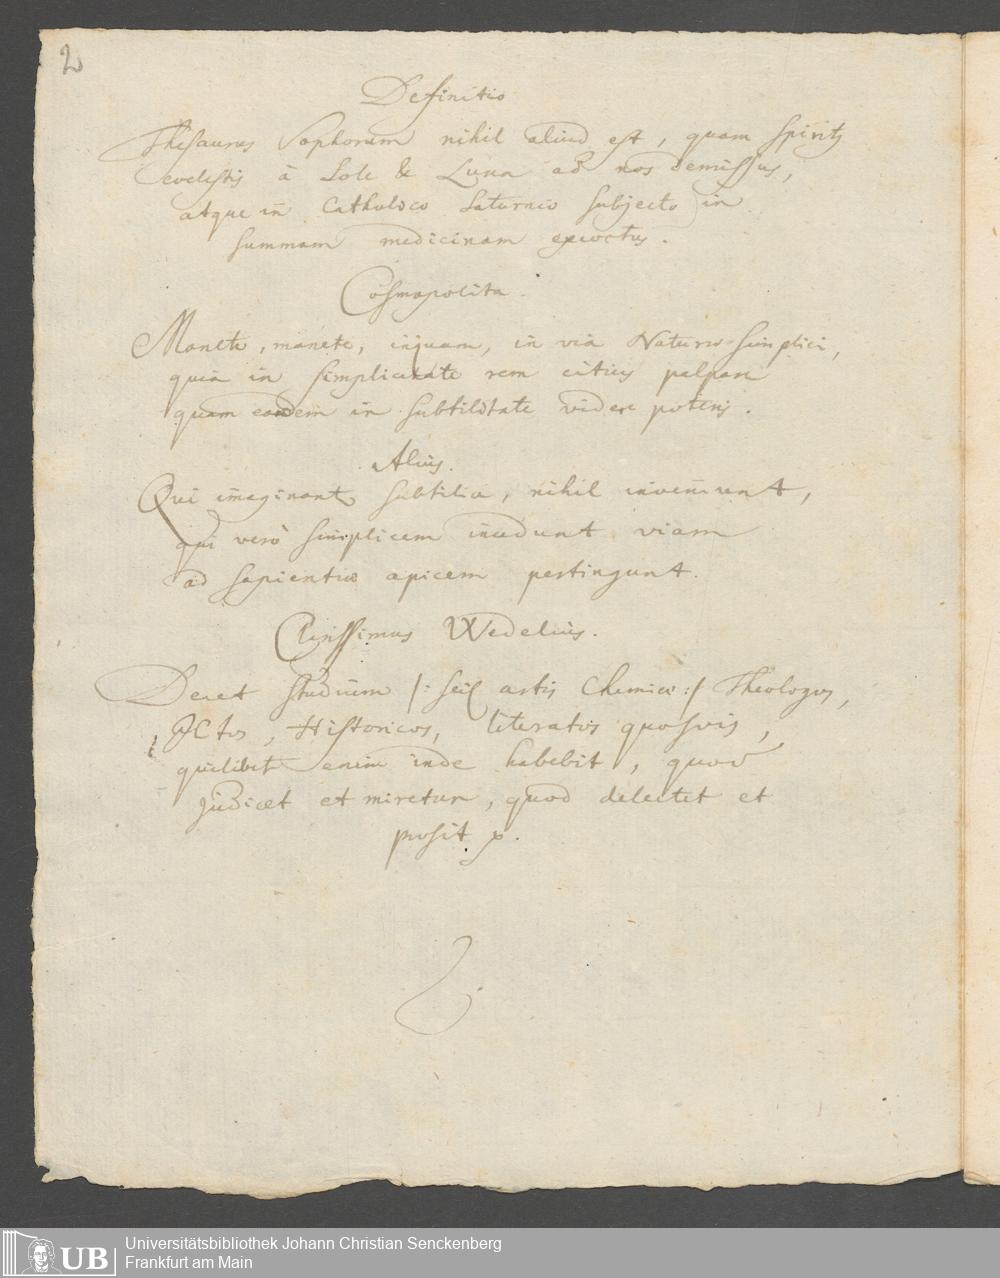 2
Definitio
Thesaurus Sophorum nihil aliud est, quam spirity
coelestis à Sole & Luna ad nos demissus,
atque in Catholico Saturnio subjecto in
summam medicinam excoctus.
Cosmopolita.
Manete, manete, inquam, in via Naturæ simplici,
quia in simplicitate rem citius palpare
quam eandem in subtilitate videre poteris.
Alius.
Qui imaginantur subtilia, nihil inveniunt,
qui verò simplicem incedunt viam
ad sapientiæ apicem pertingunt.
Clarissimus Wedelius.
Decet studium /: scil artis Chemicæ :/ Theologos,
JCtos, Historicos, literatos quosvis,
quilibet enim inde habebit, quod
judicet et miretur, quod delectet et
prosit
UB
Universitätsbibliothek Johann Christian Senckenberg
Frankfurt am Main